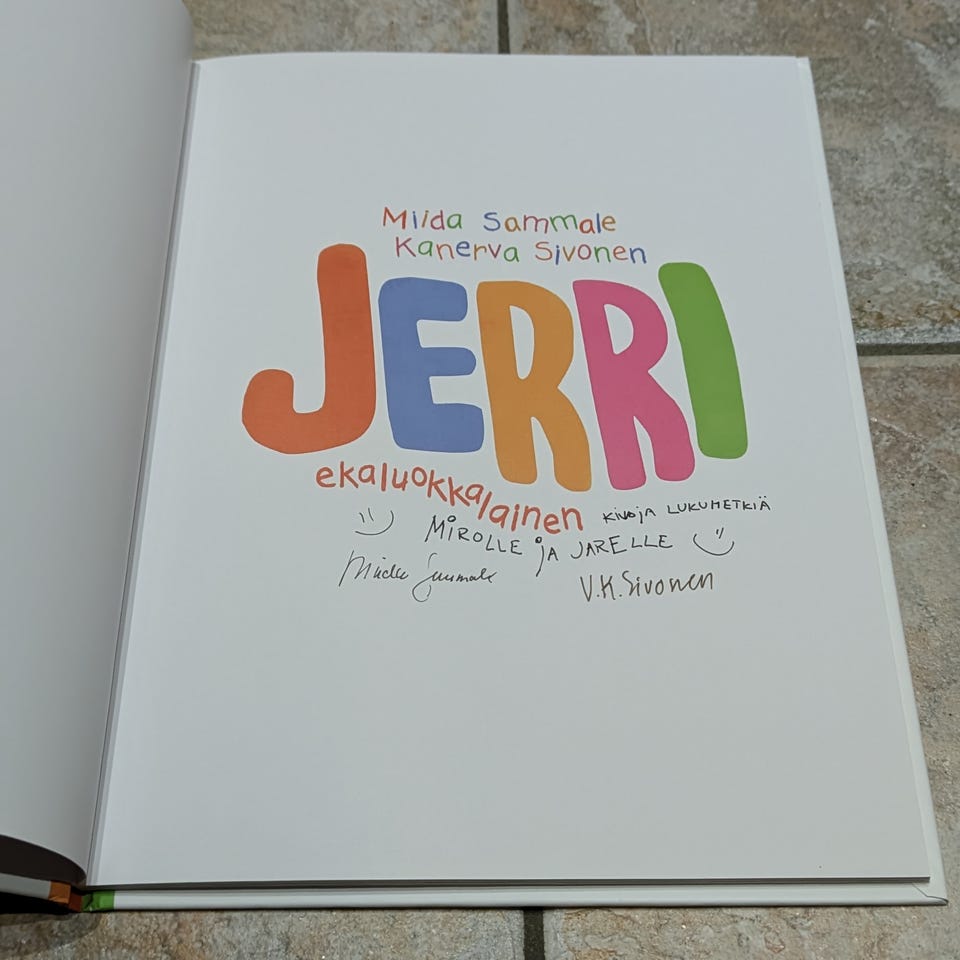 Miida Sammale
Kanerva Sivonen
JERRI
ekaluokkalainen
KIVOJA LUKUHETKIÄ
MIROLLE JA JARELLE
Miida Sammale
V.K.Sivonen